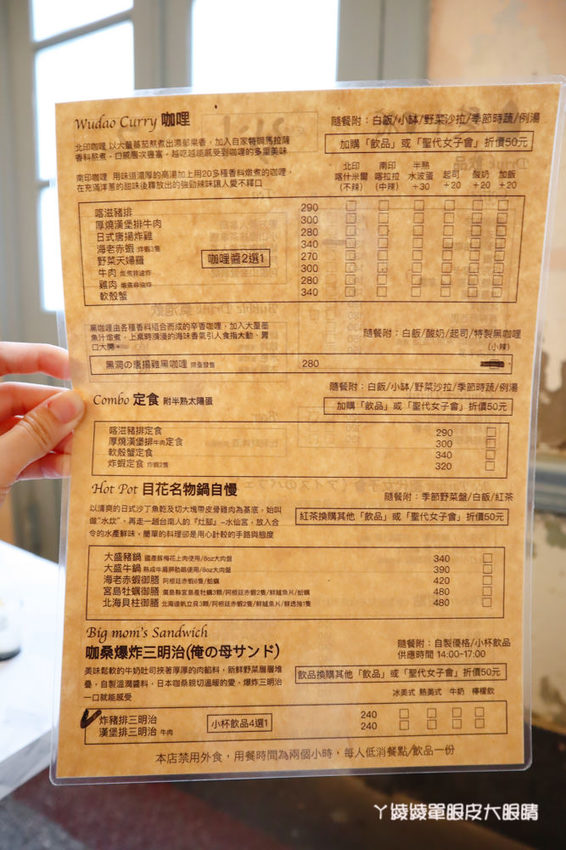 Wudao Curry 咖哩
隨餐附：白飯/小缽/野菜沙拉/季節時蔬/例湯
北印咖哩 以大量蕃茄熬煮出濃郁果香，加入自家特調馬拉薩
香料熬煮，口感層次豐富，越吃越能感受到咖哩的多重美味
加購「飲品」或「聖代女子會」折價50元
南印咖哩 用味道濃厚的高湯加上用20多種香料燉煮的咖哩，
在充滿洋蔥的甜味後釋放出的強勁辣味讓人愛不釋口
北印 南印 半熟
喀什米爾 喀拉拉 水波蛋 起司 酸奶 加飯
(不辣) (中辣) +30 +20 +20 +20
喀滋豬排 290
厚燒漢堡排牛肉 300
日式唐揚炸雞 280
海老赤蝦 炸蝦2隻 340
野菜天婦羅 270
牛肉 300
雞肉 280
軟殼蟹 340
咖哩醬2選1
黑咖哩由各種香料組合而成的辛香咖哩，加入大量墨
魚汁燉煮，上桌時濃淺的海味香氣引人食指大動，胃
口大開。
隨餐附：白飯/酸奶/起司/特製黑咖哩
(小辣)
黑洞の唐揚雞黑咖哩 限量發售 280
Combo 定食 附半熟太陽蛋
隨餐附：白飯/小缽/野菜沙拉/季節時蔬/例湯
加購「飲品」或「聖代女子會」折價50元
喀滋豬排定食 290
厚燒漢堡排牛肉定食 300
軟殼蟹定食 340
炸蝦定食 炸蝦2隻 320
Hot Pot 目花名物鍋自慢
隨餐附：季節野菜盤/白飯/紅茶
以清爽的日式沙丁魚乾及切大塊帶皮骨雞肉為基底，始叫
做"水炊"，再走一趟台南人的『灶腳』-水仙宮，放入合
令的水產鮮味，簡單的料理卻是用心計較的手路與態度
紅茶換購其他「飲品」或「聖代女子會」折價50元
大盛豬鍋 國產豚梅花上肉使用/8oz大肉盤 340
大盛牛鍋 熟成牛肩胛肋眼使用/8oz大肉盤 390
海老赤蝦御膳 阿根廷赤蝦6隻/蛤蠣 420
宮島牡蠣御膳 廣島縣宮島產牡蠣3顆/阿根廷赤蝦2隻/鮮鱸魚片/蛤蠣 480
北海貝柱御膳 北海道帆立貝3顆/阿根廷赤蝦2隻/鮮鱸魚片/鮮透抽1隻 480
Big mom's Sandwich
咖桑爆炸三明治(俺の母サンド)
隨餐附：自製優格/小杯飲品
供應時間 14:00-17:00
美味鬆軟的牛奶吐司挾著厚厚的肉餡料，新鮮野菜層層堆
疊，自製滋潤醬料，日本咖桑親切溫暖的愛，爆炸三明治
一口就能感受
飲品換購其他「飲品」或「聖代女子會」折價50元
冰美式 熱美式 牛奶 檸檬飲
炸豬排三明治 240
漢堡排三明治 牛肉 240
小杯飲品4選1
本店禁用外食，用餐時間為兩個小時，每人低消餐點/飲品一份
ㄚ綾綾單眼皮大眼睛